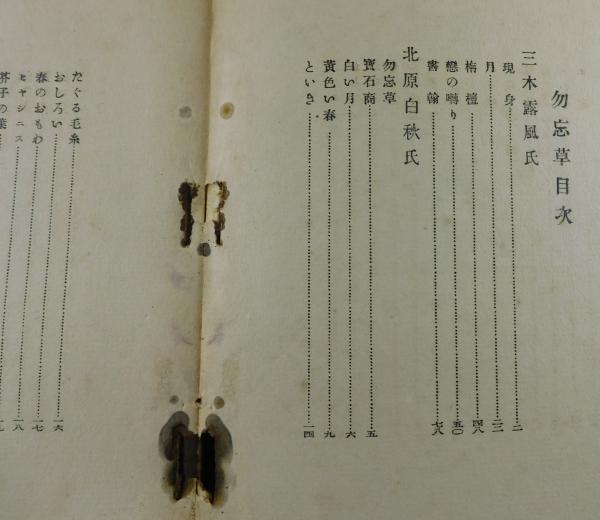 勿忘草目次
三木露風氏
現身……二
月……二三
栴檀……四八
戀の囀り……五〇
書翰……七八
北原白秋氏
勿忘草
寶石商……五
白い月……六
黄色い春……九
といき……一四
たぐる毛糸……一六
おしろい……一七
春のおもわ……一七
ヒヤシニス……一八
芥子の葉……一九